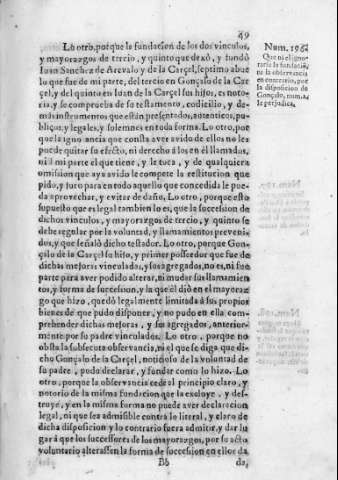 49
Lo otro, porque la fundacion de los dos vinculos,
y mayorazgos de tercio, y quinto que dexò, y fundò
Iuan Sanchez de Arevalo y de la Carçel, septimo abue
lo que fue de mi parte, del tercio en Gonçalo de la Car
çel, y del quinto en Iuan de la Carçel sus hijos, es noto-
ria, y se comprueba de su testamento, codicilio, y de-
màs instrumentos que estàn presentados, autenticos, pu-
blicos, y legales, y solemnes en toda forma. Lo otro, por
que la ignorancia que consta aver avido de ellos no les
puede quitar su efecto, ni derecho à los en èl llamados,
ni à mi parte el que tiene, y le toca, y de qualquiera
omision que aya avido le compete la restitucion que
pido, y juro para en todo aquello que concedida le pue-
da aprovechar, y evitar de daño. Lo otro, porque esto
supuesto que es legal tambien lo es, que la succession de
dichos vinculos, y mayorazgos de tercio, y quinto se
debe regular por la voluntad, y llamamientos preveni-
dos, y que señalò dicho testador. Lo otro, porque Gon-
çalo de la Carçel su hijo, y primer possedor que fue de
dichas mejoras vinculadas, y sus agregados, no es, ni fue
parte para aver podido alterar, ni mudar sus llamamien
tos, y forma de succession, y la que èl diò en el mayoraz
go que hizo, quedò legalmente limitada à sus propios
bienes de que pudo disponer, y no pudo en ella com-
prehender dichas mejoras, y sus agregados, anterior-
mente por su padre vinculados. Lo otro, porque no
obsta la subsecuta observancia, ni el que se diga que di-
cho Gonçalo de la Carçel, noticioso de la voluntad de
su padre, pudo declarar, y fundar como lo hizo. Lo
otro, porque la observancia cede al principio claro, y
notorio de la misma fundacion que la excluye, y des-
truye, y en la misma forma no puede aver declaracion
legal, ni que sea admisible contra lo literal, y claro de
dicha disposicion y lo contrario fuera admitir, y dar lu
gar à que los successores de los mayorazgos, por su acto
voluntario alterassen la forma de succession en ellos da
Bb
da,
Num. 196.
Que ni el igno-
rarse la fundaciō,
ni la observancia
en contrario, por
la disposicion de
Gonçalo, num. 2.
le perjudica.